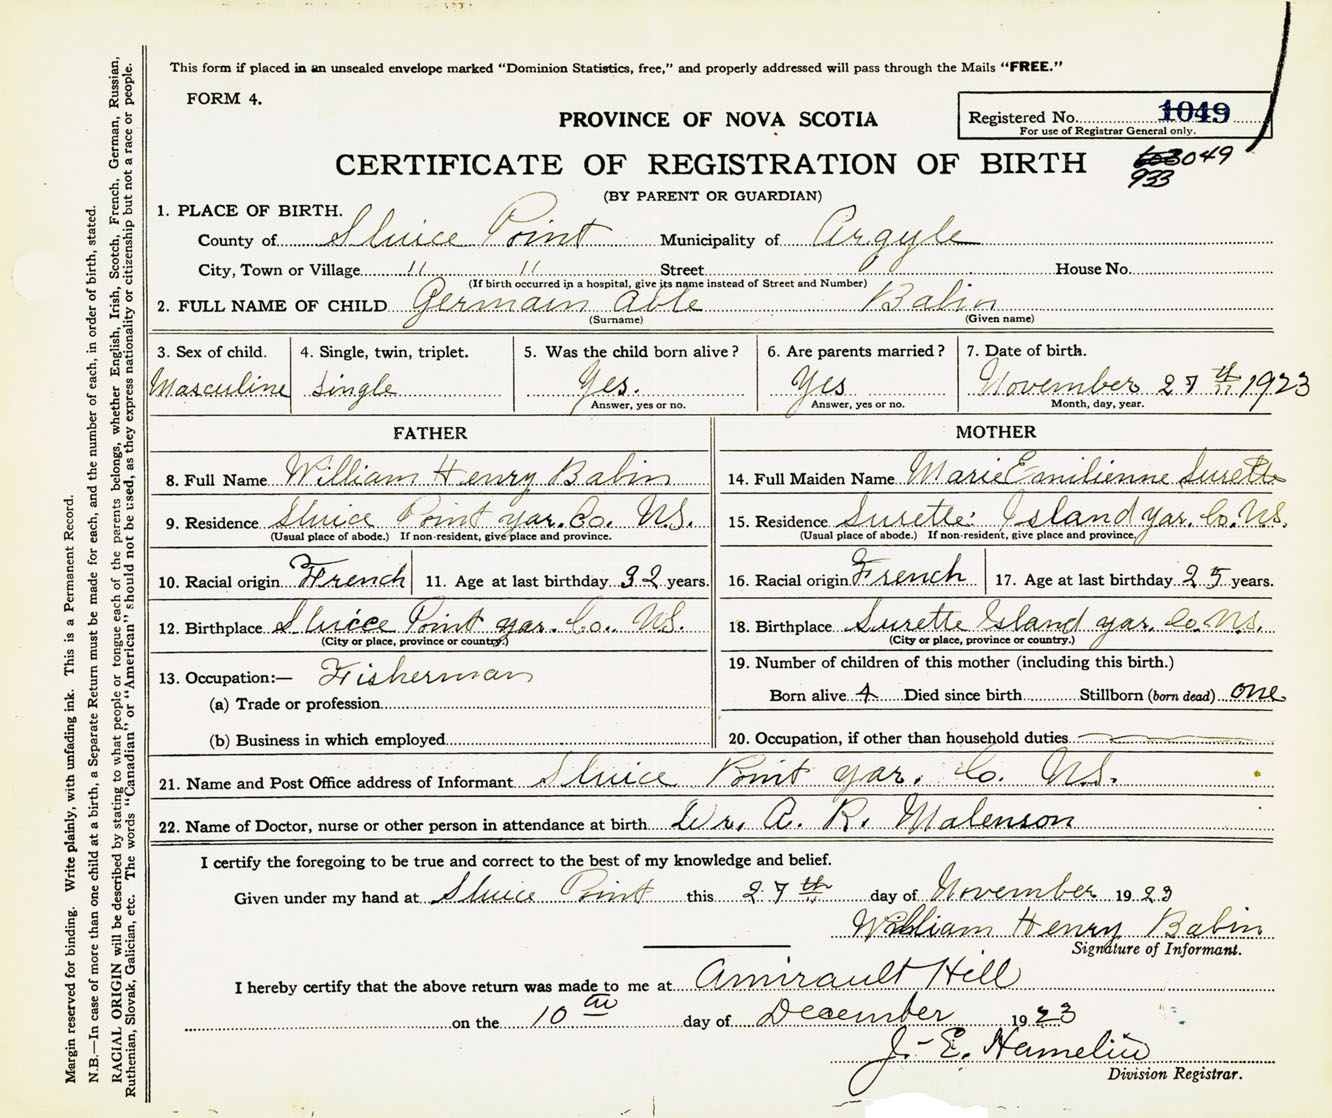 This form if placed in an unsealed envelope marked "Dominion Statistics, free," and properly addressed will pass through the Mails "FREE."
FORM 4.
PROVINCE OF NOVA SCOTIA
Registered No. 1049
For use of Registrar General only.
CERTIFICATE OF REGISTRATION OF BIRTH
049
933
(BY PARENT OR GUARDIAN)
1. PLACE OF BIRTH.
County of Sluice Point Municipality of Argyle
City, Town or Village " " Street House No.
(If birth occurred in a hospital, give its name instead of Street and Number)
2. FULL NAME OF CHILD Germain Able Babin
(Surname) (Given name)
3. Sex of child. 4. Single, twin, triplet. 5. Was the child born alive? 6. Are parents married? 7. Date of birth.
Masculine single Yes. Yes November 27th 1923
Answer, yes or no. Answer, yes or no. Month, day, year.
FATHER MOTHER
8. Full Name William Henry Babin 14. Full Maiden Name Marie Emilienne Surette
9. Residence Sluice Point Yar. Co. N.S. 15. Residence Surette Island Yar. Co. N.S.
(Usual place of abode.) If non-resident, give place and province. (Usual place of abode.) If non-resident, give place and province.
10. Racial origin French 11. Age at last birthday 32 years. 16. Racial origin French 17. Age at last birthday 25 years.
12. Birthplace Sluice Point Yar. Co. N.S. 18. Birthplace Surette Island Yar. Co. N.S.
(City or place, province or country.) (City or place, province or country.)
13. Occupation:— Fisherman 19. Number of children of this mother (including this birth.)
(a) Trade or profession Born alive 4 Died since birth Stillborn (born dead) one
(b) Business in which employed 20. Occupation, if other than household duties
21. Name and Post Office address of Informant Sluice Point Yar. Co. N.S.
22. Name of Doctor, nurse or other person in attendance at birth Dr. A. R. Malenson
I certify the foregoing to be true and correct to the best of my knowledge and belief.
Given under my hand at Sluice Point this 27th day of November 1923
William Henry Babin
Signature of Informant.
I hereby certify that the above return was made to me at Amirault Hill
on the 10th day of December 1923
J. E. Hamelin
Division Registrar.
Margin reserved for binding. Write plainly, with unfading ink. This is a Permanent Record.
N.B.—In case of more than one child at a birth, a Separate Return must be made for each, and the number of each, in order of birth, stated.
RACIAL ORIGIN will be described by stating to what people or tongue each of the parents belongs, whether English, Irish, Scotch, French, German, Russian,
Ruthenian, Slovak, Galician, etc. The words "Canadian" or "American" should not be used, as they express nationality or citizenship but not a race or people.